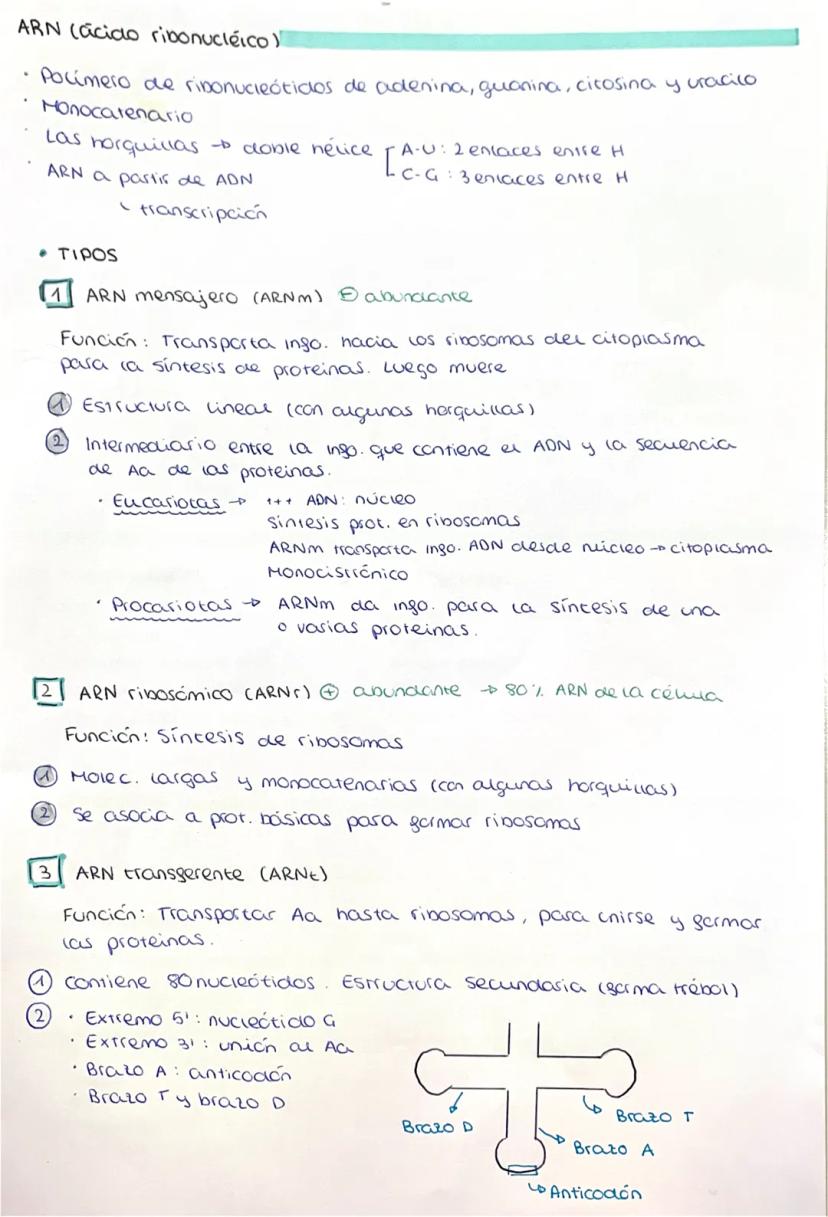 ARN (ácido ribonucléico)
· Polímero de ribonucleótidos de adenina, guanina, citosina y uracilo
· Monocatenario
· Las horquillas → doble hélice [ A-U : 2 enlaces entre H
C-G : 3 enlaces entre H
· ARN a partir de ADN
↳ transcripción
• TIPOS
1 ARN mensajero (ARNm) ⊖ abundante
Función: Transporta info. hacia los ribosomas del citoplasma
para la síntesis de proteinas. Luego muere
① Estructura lineal (con algunas horquillas)
② Intermediario entre la info. que contiene el ADN y la secuencia
de Aa de las proteinas.
· Eucariotas → +++ ADN: núcleo
Síntesis prot. en ribosomas
ARNm transporta info. ADN desde núcleo → citoplasma
Monocistrónico
· Procariotas → ARNm da info. para la síntesis de una
o varias proteinas.
2 ARN ribosómico (ARNr) ⊕ abundante → 80% ARN de la célula
Función: Síntesis de ribosomas
① Molec. largas y monocatenarias (con algunas horquillas)
② Se asocia a prot. básicas para formar ribosomas
3 ARN transferente (ARNt)
Función: Transportar Aa hasta ribosomas, para unirse y formar
las proteinas.
① Contiene 80 nucleótidos. Estructura secundaria (forma trébol)
② · Extremo 5' : nucleótido G
· Extremo 3' : unión al Aa
· Brazo A : anticodón
· Brazo T y brazo D
Brazo D
Brazo T
Brazo A
Anticodón